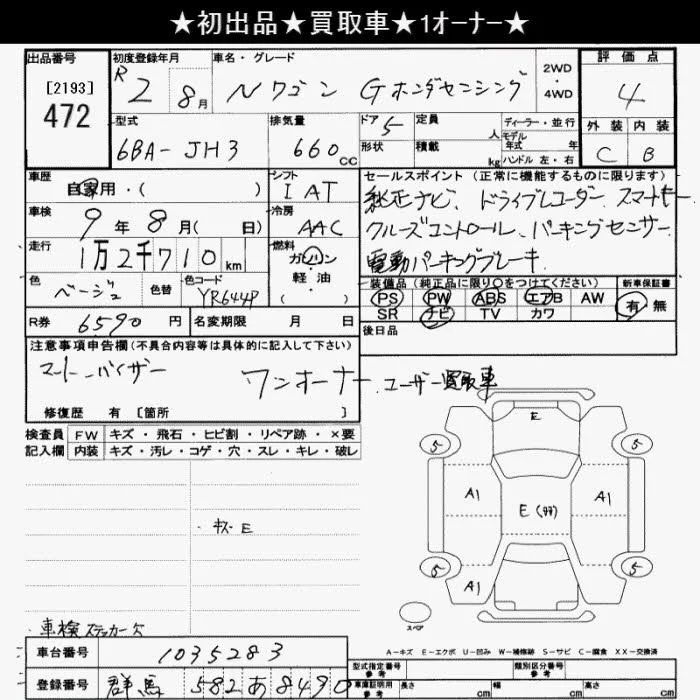 ★初出品★買取車★1オーナー★
出品番号 [2193] 472
初度登録年月 R2 8月
車名・グレード Nワゴン Gホンダセンシング
2WD・4WD
評価点 4
外装 内装
C B
型式 6BA-JH3
排気量 660 CC
ドア 5
形状
定員 人
積載 kg
ディーラー・並行
モデル年式 年
ハンドル 左・右
車歴 自家用・( )
シフト IAT
車検 9年8月( 日)
冷房 AAC
走行 1万2千710km
燃料 ガソリン 軽油 ( )
色 ベージュ 色替
色コード YR644P
R券 6590円
名変期限 月 日
セールスポイント (正常に機能するものに限ります)
純正ナビ、ドライブレコーダー スマートキー
クルーズコントロール、パーキングセンサー
電動パーキングブレーキ
装備品(純正品に限り○をつけてください)
PS PW ABS エアB AW
SR ナビ TV カワ
新車保証書
有 無
後日品
注意事項申告欄(不具合内容等は具体的に記入して下さい)
ワンオーナー、ユーザー買取車
修復歴 有 [箇所 ]
検査員記入欄
FW キズ・飛石・ヒビ割・リペア跡・×要
内装 キズ・汚レ・コゲ・穴・スレ・キレ・破レ
・キズ E
E
5 5
A1 A1
E(タタ)
5 5
A1
スペア
車検ステッカー欠
A−キズ E−エクボ U−凹み W−補修跡 S−サビ C−腐食 XX−交換済
車台番号 1035283
登録番号 群馬 582 あ 8490
型式指定番号 参考
類別区分番号 参考
車庫証明用 参考 長さ cm 幅 cm 高さ cm